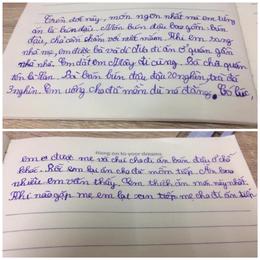 Trên đời này, món ngon nhất mà em từng
ăn là bún đậu. Món bún đậu bao gồm: bún
đậu, chả cốm chấm với mắm. Khi em sang
nhà mẹ, em được bà và dì đi ăn ở quán gần
nhà nhỏ. Em dắt em đi cùng. Bà chủ quán
tên là Lan. Là bún đậu 20 nghìn, trà đá
3 nghìn. Em uống cho đã môn dù né đắng. Có lúc,
Hang on to your dreams
em ở được mẹ và chú cho đi ăn bún đậu ở chỗ
khác. Rồi em lại ăn cho đã mồm tiếp. Ăn bao
nhiêu em vẫn thấy. Em thích ăn món này nhất.
Khi nào gặp mẹ em lại xin tiếp mẹ cho đi ăn tiếp.